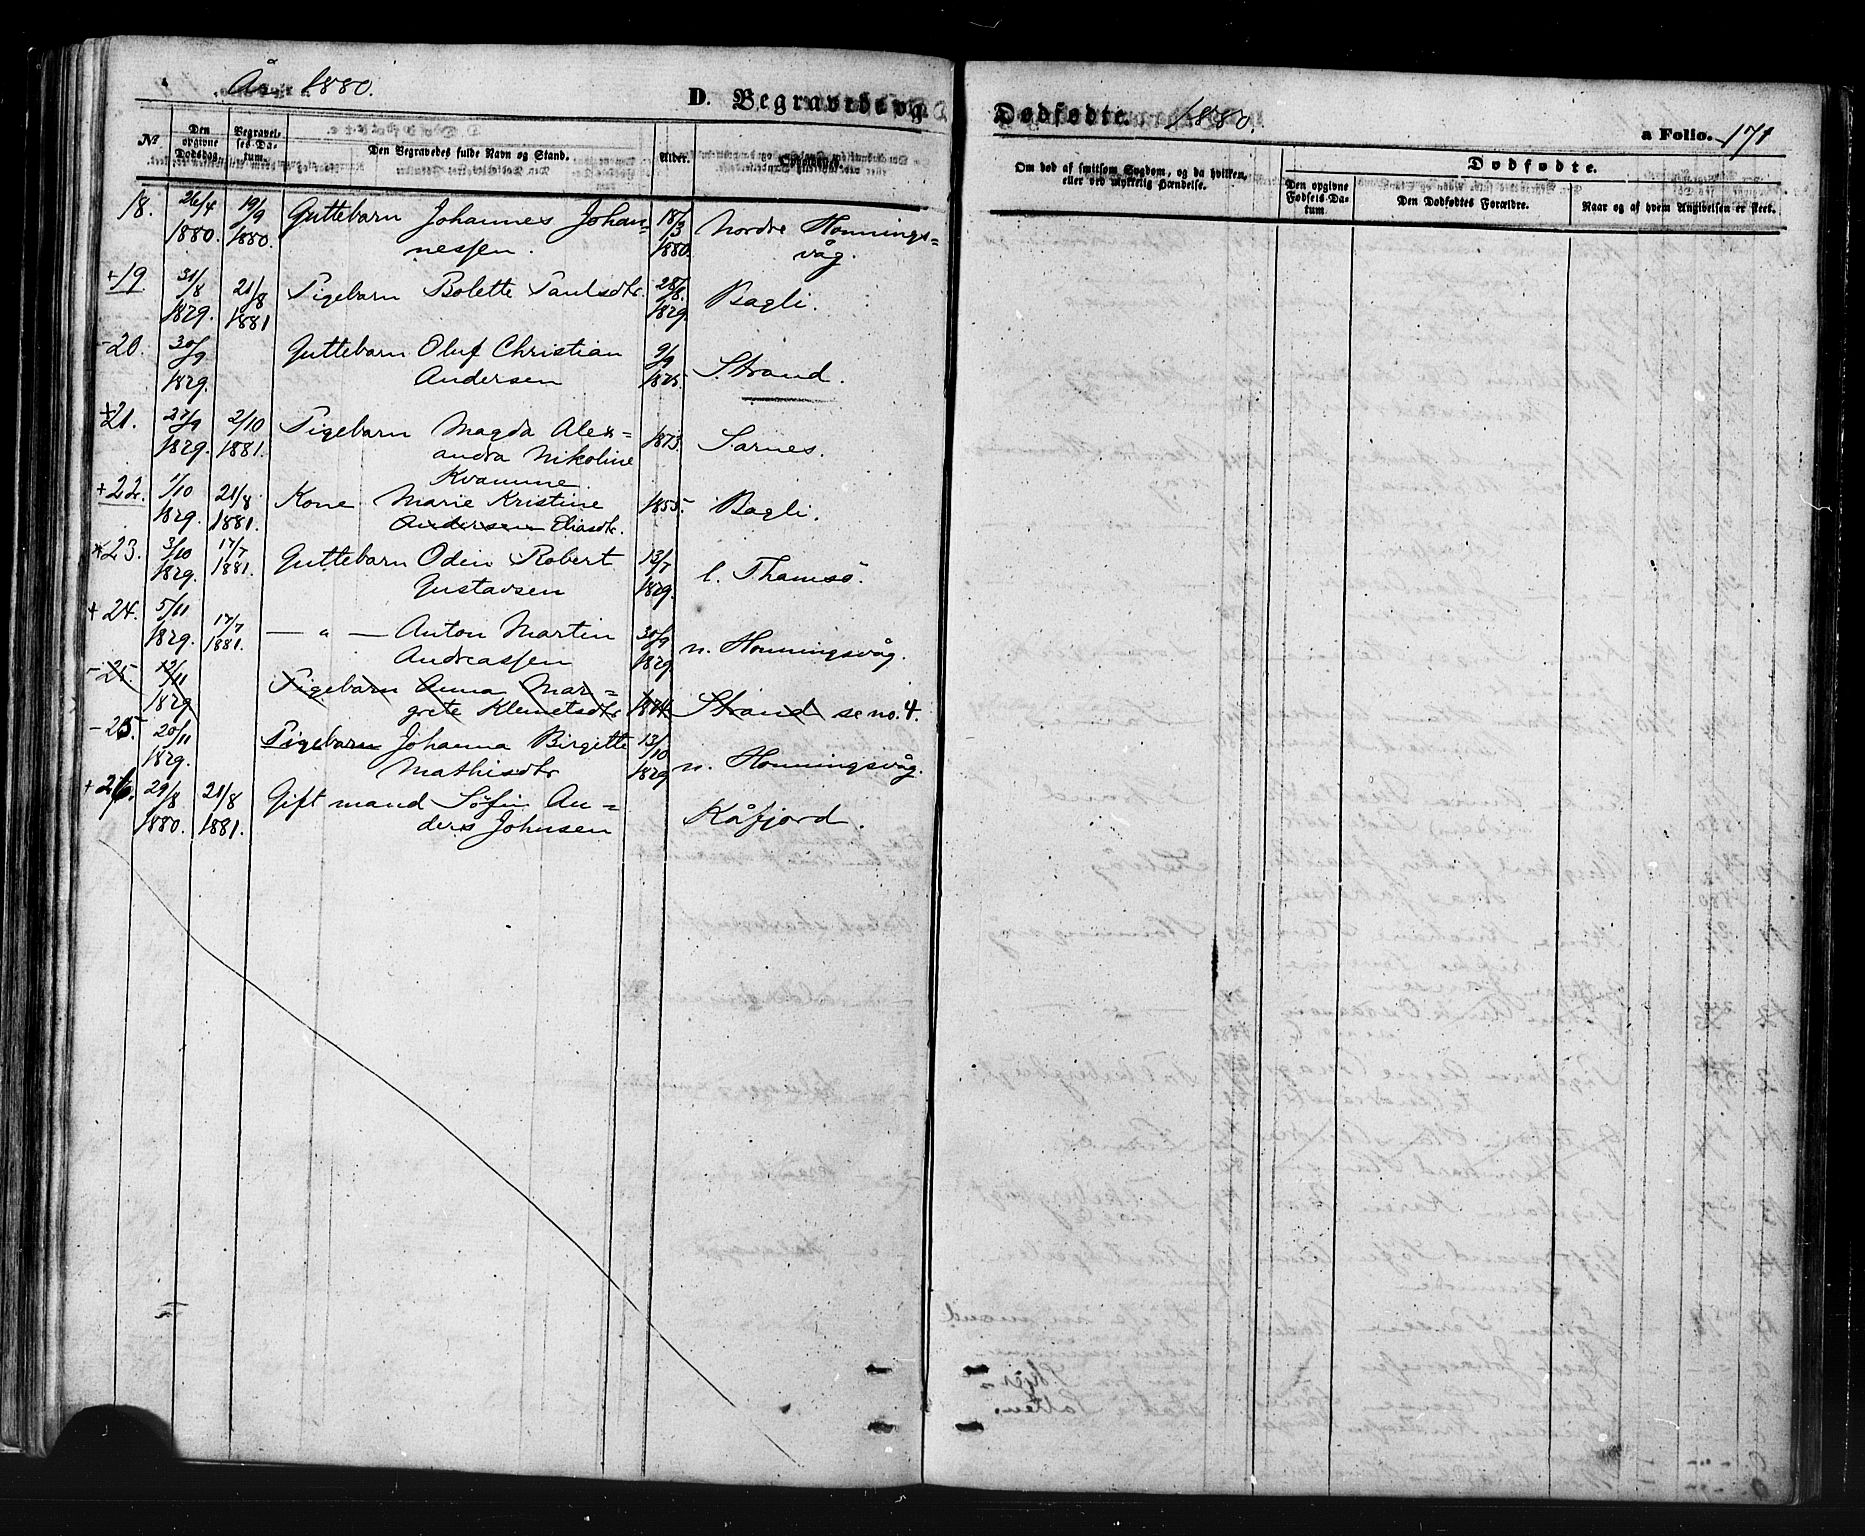 År 1880.
D. Begravede og
№
Den opgivne Dødsdag.
Begravelses-Datum.
Den Begravedes fulde Navn og Stand.
Alder.
18. 26/4 1880. 19/9 1880. Guttebarn Johannes Johan-
nessen. 18/3 1880. Nordre Honnings-
våg.
+19. 31/8 1879. 21/8 1881 Pigebarn Bolette Paulsdtr. 28/8 1879 Bagli.
-20. 30/9 1879. Guttebarn Oluf Christian
Andersen 9/9 1875. Strand.
+21. 27/9 1879. 2/10 1881. Pigebarn Magda Alex-
andra Nikoline
Kvamme 1873. Sarnes.
+22. 1/10 1879. 21/8 1881. Kone Marie Kristine
Andersen Eliasdtr. 1855. Bagli.
+23. 3/10 1879. 17/7 1881. Guttebarn Odin Robert
Gustavsen 13/7 1879. l. Thamsø.
+24. 5/11 1879. 17/7 1881. — " — Anton Martin
Andreassen 30/9 1879 n. Honningsvåg.
-25. 12/11 1879 Pigebarn Anna Mar-
grete Klemetsdtr 1874 Strand se no. 4.
-25. 20/11 1879. Pigebarn Johanna Birgitte
Mathisdtr 13/10 1879 n. Honningsvåg.
+26. 29/8 1880. 21/8 1881. Gift mand Søfin An-
ders Johnsen Kåfjord.
Dødfødte. 1880.
a Folio. 171
Om død af smitsom Sygdom, og da hvilken,
eller ved ulykkelig Hændelse.
Dødfødte.
Den opgivne Fødsels-Datum
Den Dødfødtes Forældre.
Naar og af hvem Angivelsen er skeet.